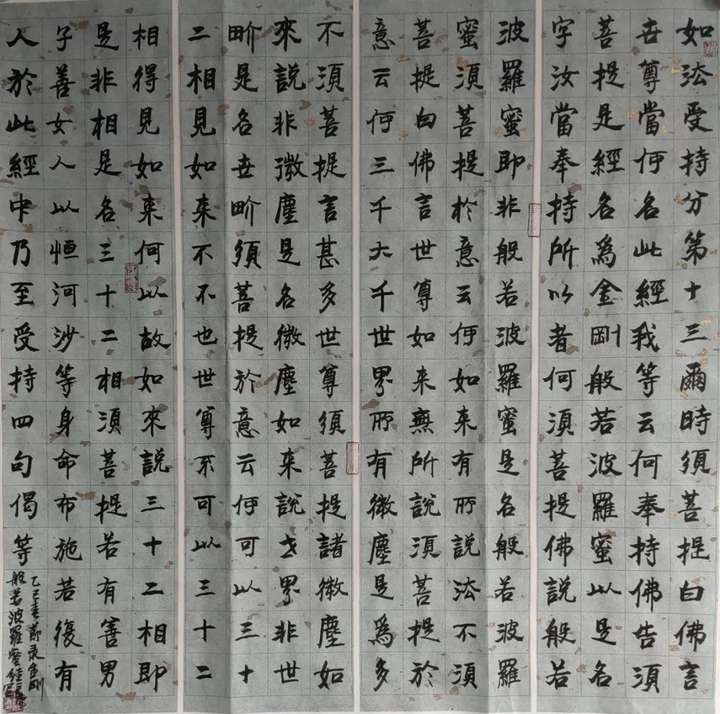 如法受持分第十三爾時須菩提白佛言
世尊當何名此經我等云何奉持佛告須
菩提是經名為金剛般若波羅蜜以是名
字汝當奉持所以者何須菩提佛說般若
波羅蜜即非般若波羅蜜是名般若波羅
蜜須菩提於意云何如来有所說法不須
菩提白佛言世尊如来無所說須菩提於
意云何三千大千世界所有微塵是為多
不須菩提言甚多世尊須菩提諸微塵如
來說非微塵是名微塵如來說世界非世
畍是名世畍須菩提於意云何可以三十
二相見如来不不也世尊不可以三十二
相得見如来何以故如來說三十二相即
是非相是名三十二相須菩提若有善男
子善女人以恒河沙等身命布施若復有
人於此經中乃至受持四句偈等
乙巳春節录金剛
般若波羅蜜經